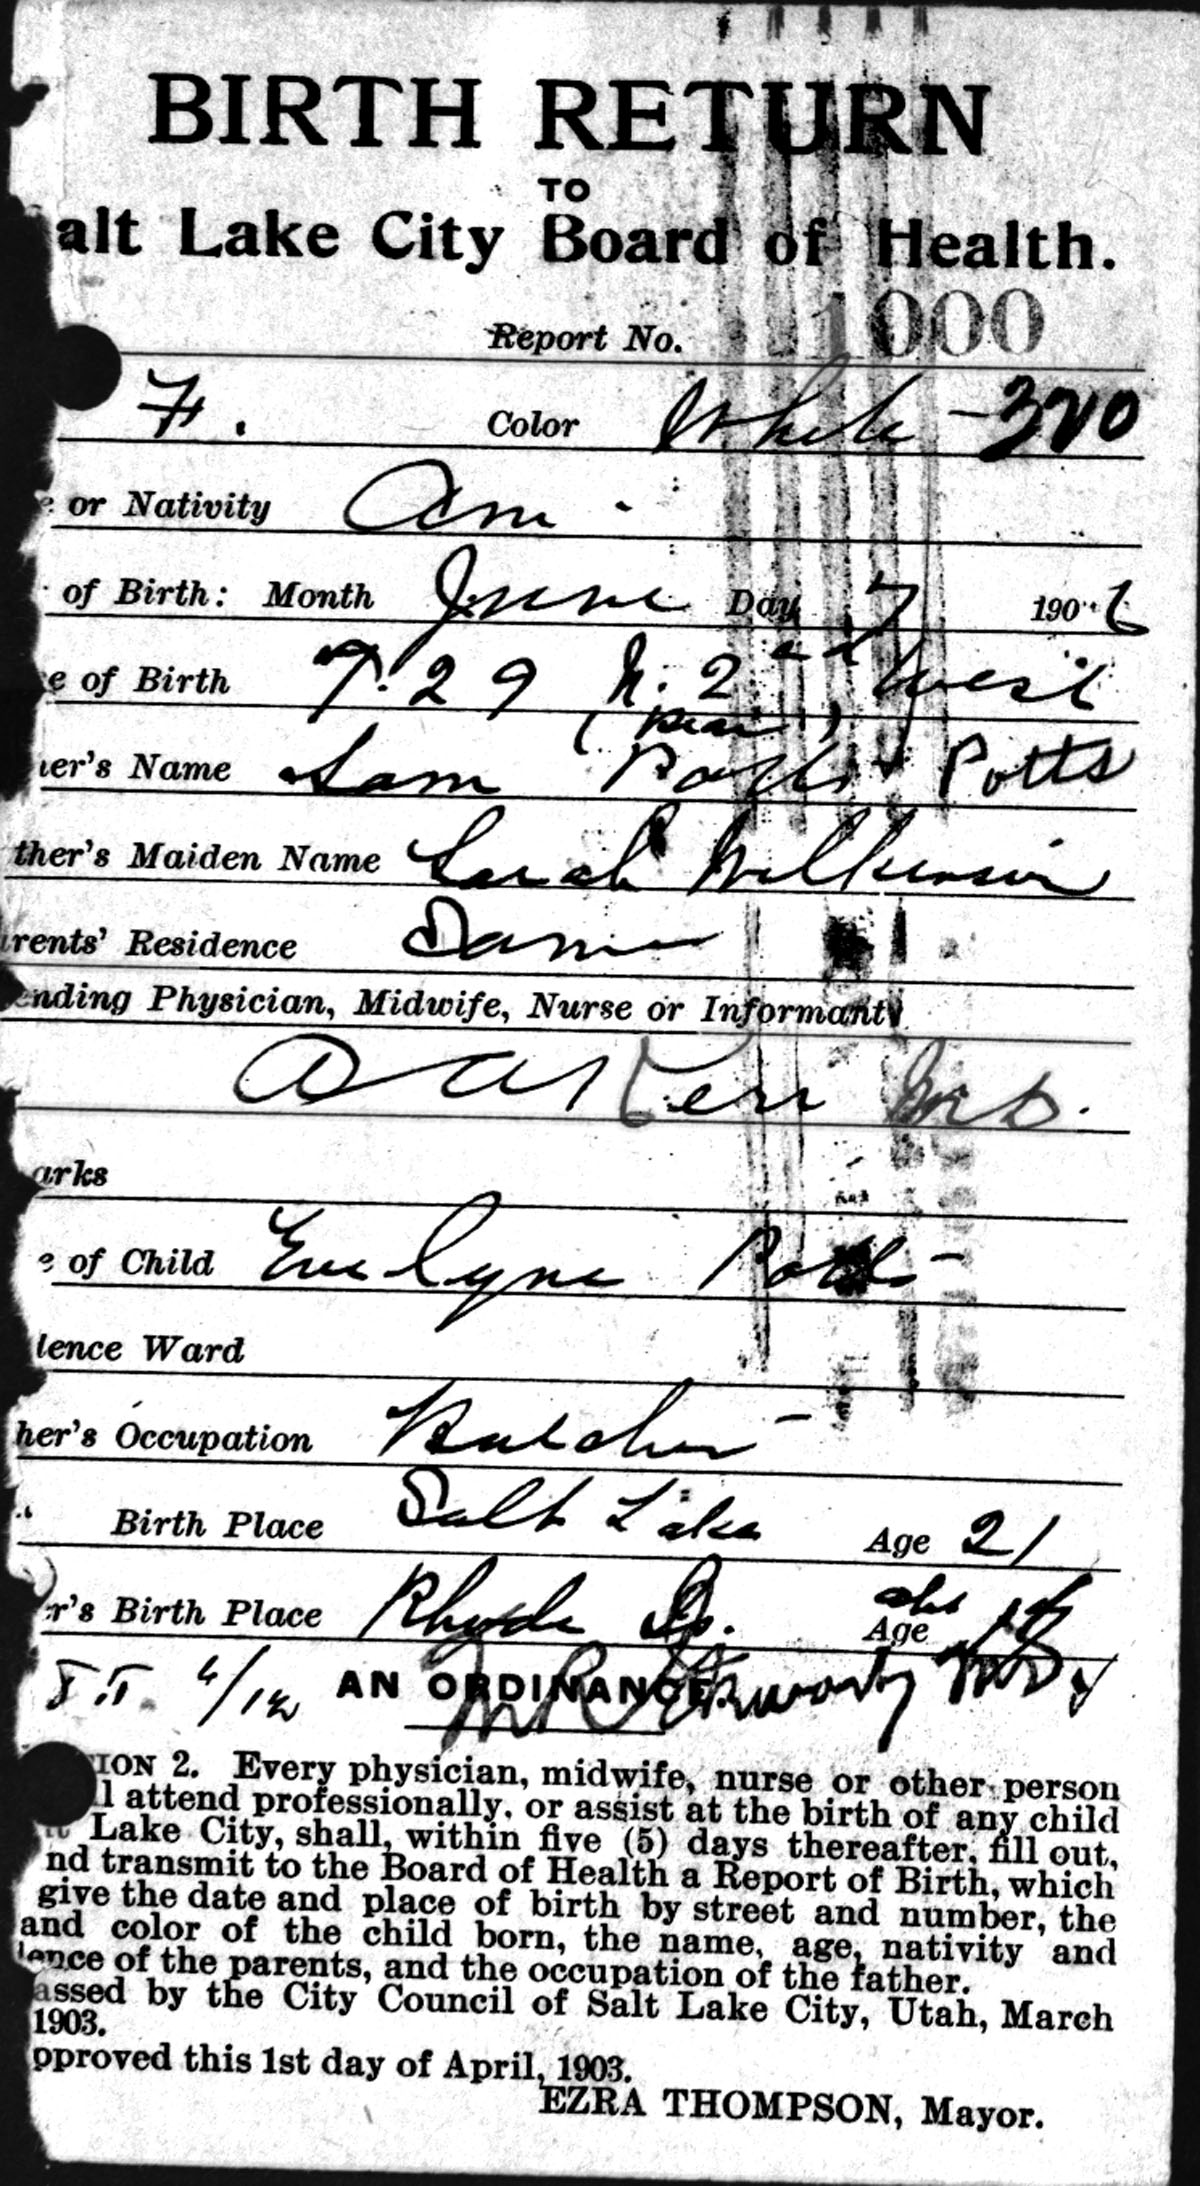 BIRTH RETURN
TO
alt Lake City Board of Health.
Report No. 1000
F. Color White - 320
e or Nativity Am.
of Birth: Month June Day 7 1906
e of Birth 729 N. 2nd West
(Rear)
er's Name Sam Potts Potts
ther's Maiden Name Sarah Wilkinson
rents' Residence Same
ending Physician, Midwife, Nurse or Informant
Kerr M.D.
arks
e of Child Evelyne Potts -
dence Ward
her's Occupation Butcher -
Birth Place Salt Lake Age 21
r's Birth Place Rhode Is. Age
AN ORDINANCE.
ION 2. Every physician, midwife, nurse or other person
l attend professionally, or assist at the birth of any child
Lake City, shall, within five (5) days thereafter, fill out,
nd transmit to the Board of Health a Report of Birth, which
give the date and place of birth by street and number, the
and color of the child born, the name, age, nativity and
ence of the parents, and the occupation of the father.
assed by the City Council of Salt Lake City, Utah, March
1903.
pproved this 1st day of April, 1903.
EZRA THOMPSON, Mayor.